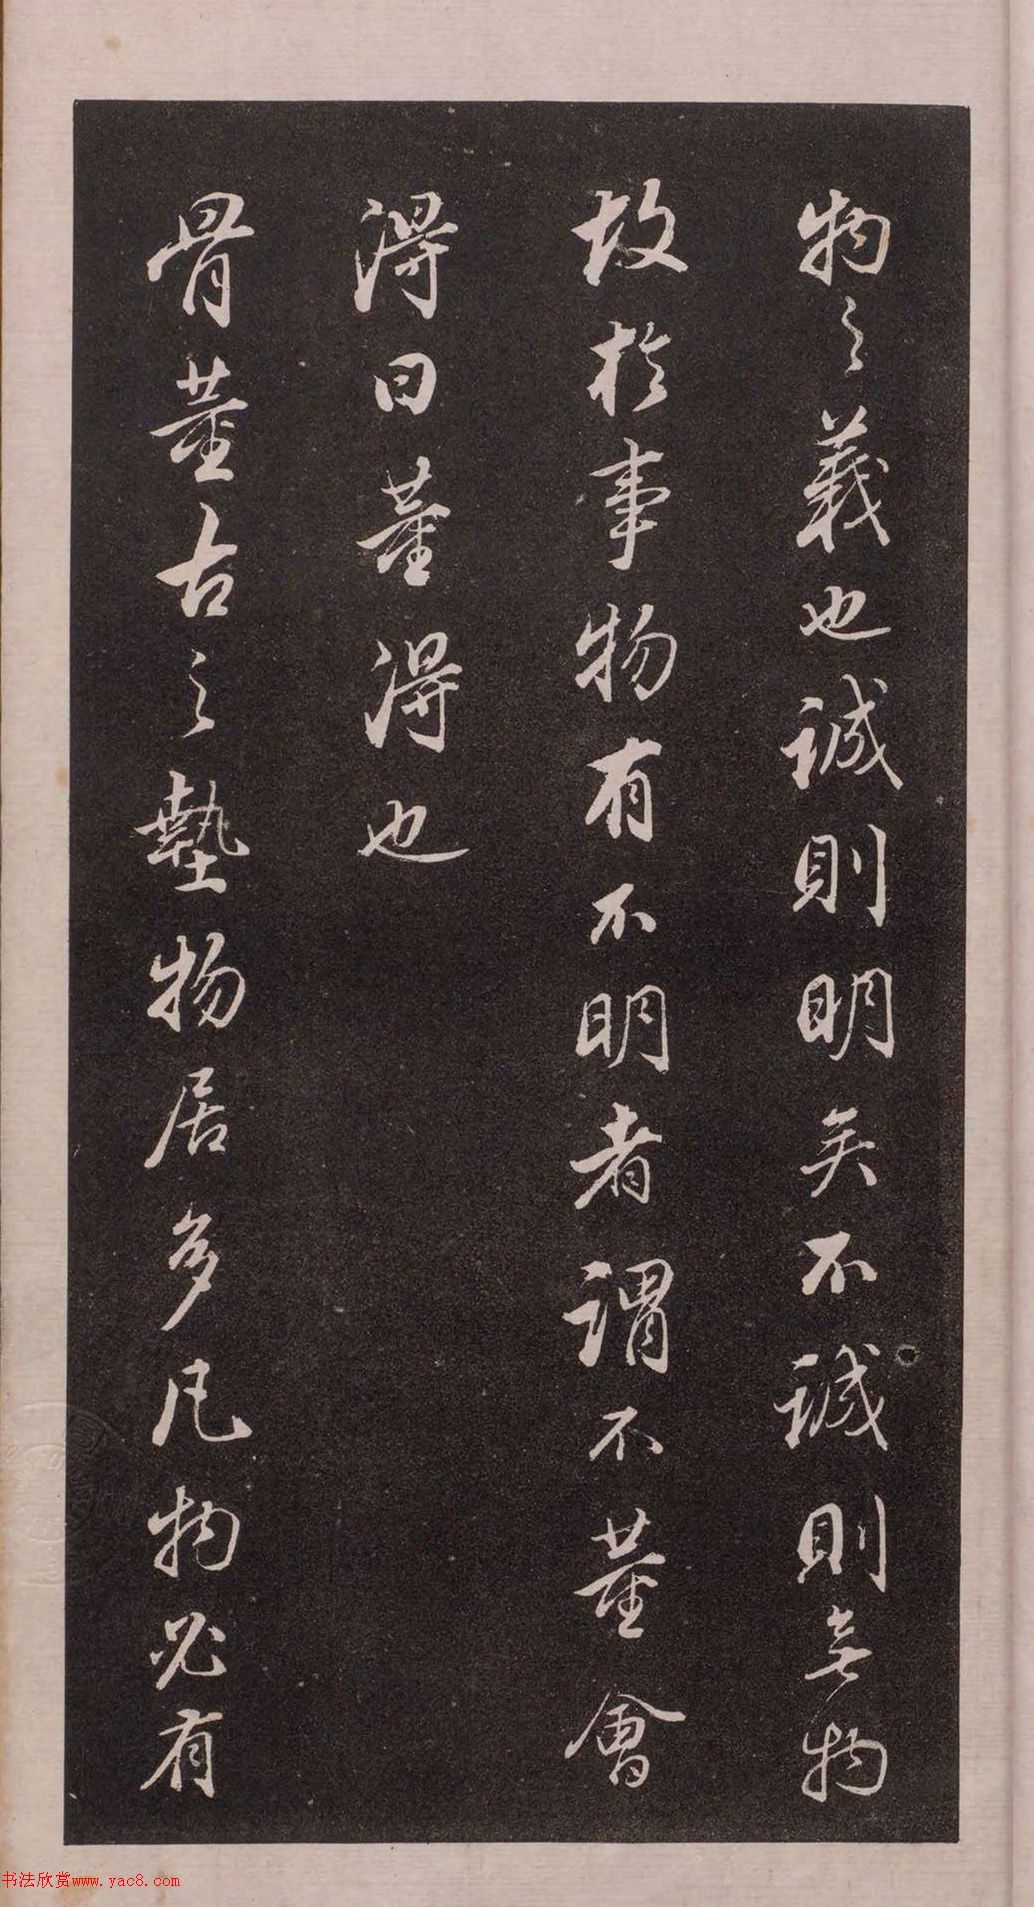 物之義也誠則明矣不誠則無物
故於事物有不明者謂不董會
得曰董得也
骨董古之墊物居多凡物必有
书法欣赏www.yac8.com